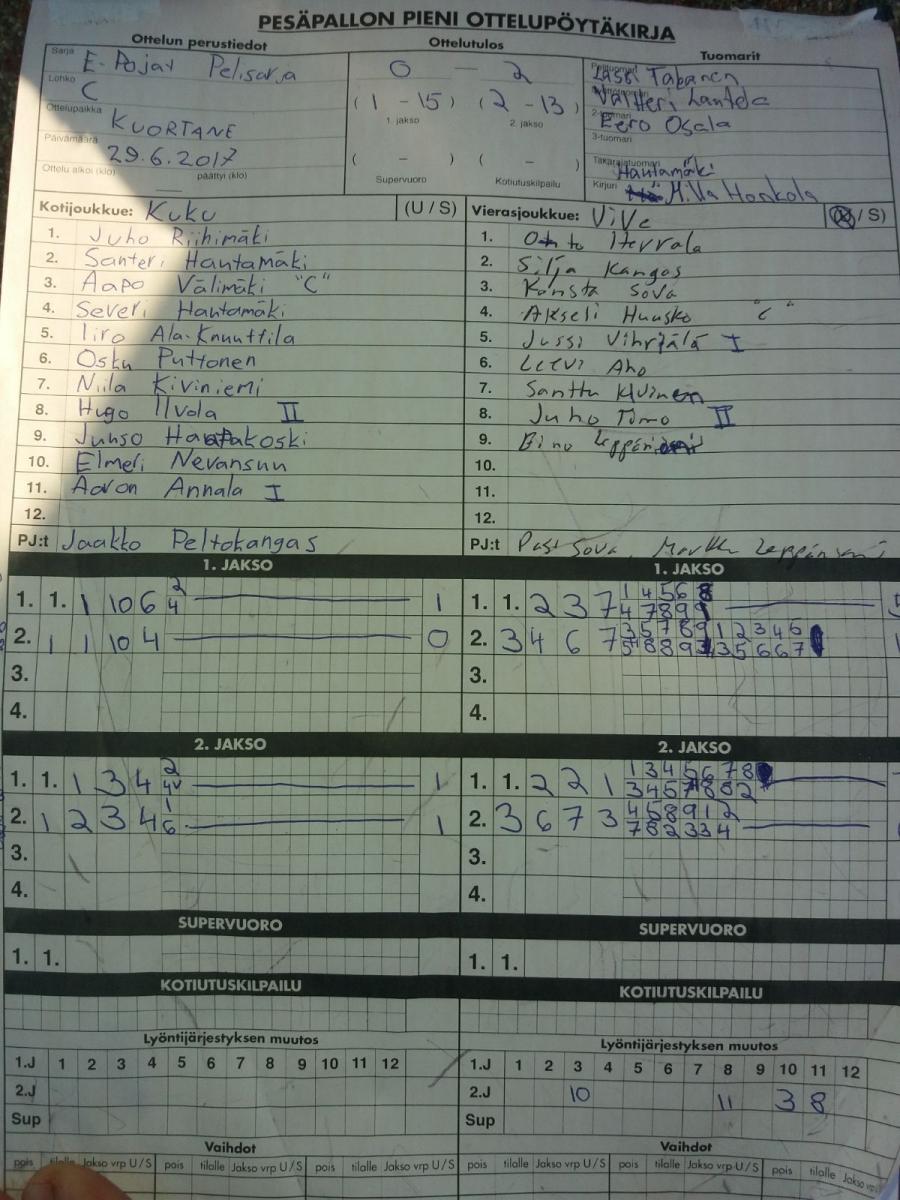 PESÄPALLON PIENI OTTELUPÖYTÄKIRJA
Ottelun perustiedot
Ottelutulos
Tuomarit
Sarja E-Pojat Pelisarja
Lohko C
Ottelupaikka KUORTANE
Päivämäärä 29.6.2017
Ottelu alkoi (klo) päättyi (klo)
0 - 2
(1 - 15) (2 - 13)
1. jakso 2. jakso
( - ) ( - )
Supervuoro Kotiutuskilpailu
Lassi Tabanen
Valtteri Lantela
Eero Osala
3-tuomari
Takarajatuomari Hautamäki
Kirjuri Milla Honkola
Kotijoukkue: Kuku (U / S)
1. Juho Riihimäki
2. Santeri Hautamäki
3. Aapo Välimäki "C"
4. Severi Hautamäki
5. Iiro Ala-Knuuttila
6. Osku Puttonen
7. Niila Kiviniemi
8. Hugo Ilvola II
9. Juuso Haapakoski
10. Elmeri Nevansuu
11. Aaron Annala I
12.
PJ:t Jaakko Peltokangas
Vierasjoukkue: ViVe (U / S)
1. Otto
2. Silja Kangas
3. Konsta Sova
4. Akseli Huusko "C"
5. Jussi Vihriälä I
6. Leevi Aho
7. Santtu
8. Juho Tomo II
9. Eino
10.
11.
12.
PJ:t Pasi Sova, Markku
1. JAKSO
1. 1. 1 10 6 2 4 1
2. 1 1 10 4 0
3.
4.
1. JAKSO
1. 1. 2 3 7 1 4 5 6 8
4 7 8 9
2. 3 4 6 7
3.
4.
2. JAKSO
1. 1. 1 3 4 2 1
2. 1 2 3 4 1 6 1
3.
4.
2. JAKSO
1. 1. 2 2 1 1 3 4 5 6 7 8
3 4 5 7 8 8 2
2. 3 6 7 3 4 5 8 9 1 2
7 8 2 3 3 4
3.
4.
SUPERVUORO
1. 1.
SUPERVUORO
1. 1.
KOTIUTUSKILPAILU
KOTIUTUSKILPAILU
Lyöntijärjestyksen muutos
1.J 1 2 3 4 5 6 7 8 9 10 11 12
2.J
Sup
Lyöntijärjestyksen muutos
1.J 1 2 3 4 5 6 7 8 9 10 11 12
2.J 10 11 3 8
Sup
Vaihdot
pois tilalle Jakso vrp U / S pois tilalle Jakso vrp U / S pois tilalle Jakso vrp U / S
Vaihdot
pois tilalle Jakso vrp U / S pois tilalle Jakso vrp U / S pois tilalle Jakso vrp